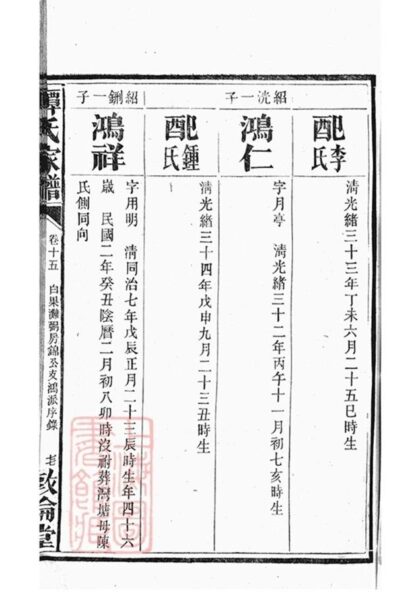 配李氏
清光緒三十三年丁未六月二十五巳時生
紹洸一子
鴻仁
字月亭 清光緒三十二年丙午十一月初七亥時生
配鍾氏
清光緒三十四年戊申九月二十三丑時生
紹鍘一子
鴻祥
字用明 清同治七年戊辰正月二十三辰時生年四十六
歲 民國二年癸丑陰曆二月初八卯時沒祔葬灣塘母陳
氏側同向
譚氏家譜
卷十五 白果灘弼房錦公支鴻派序錄
老
敦倫堂